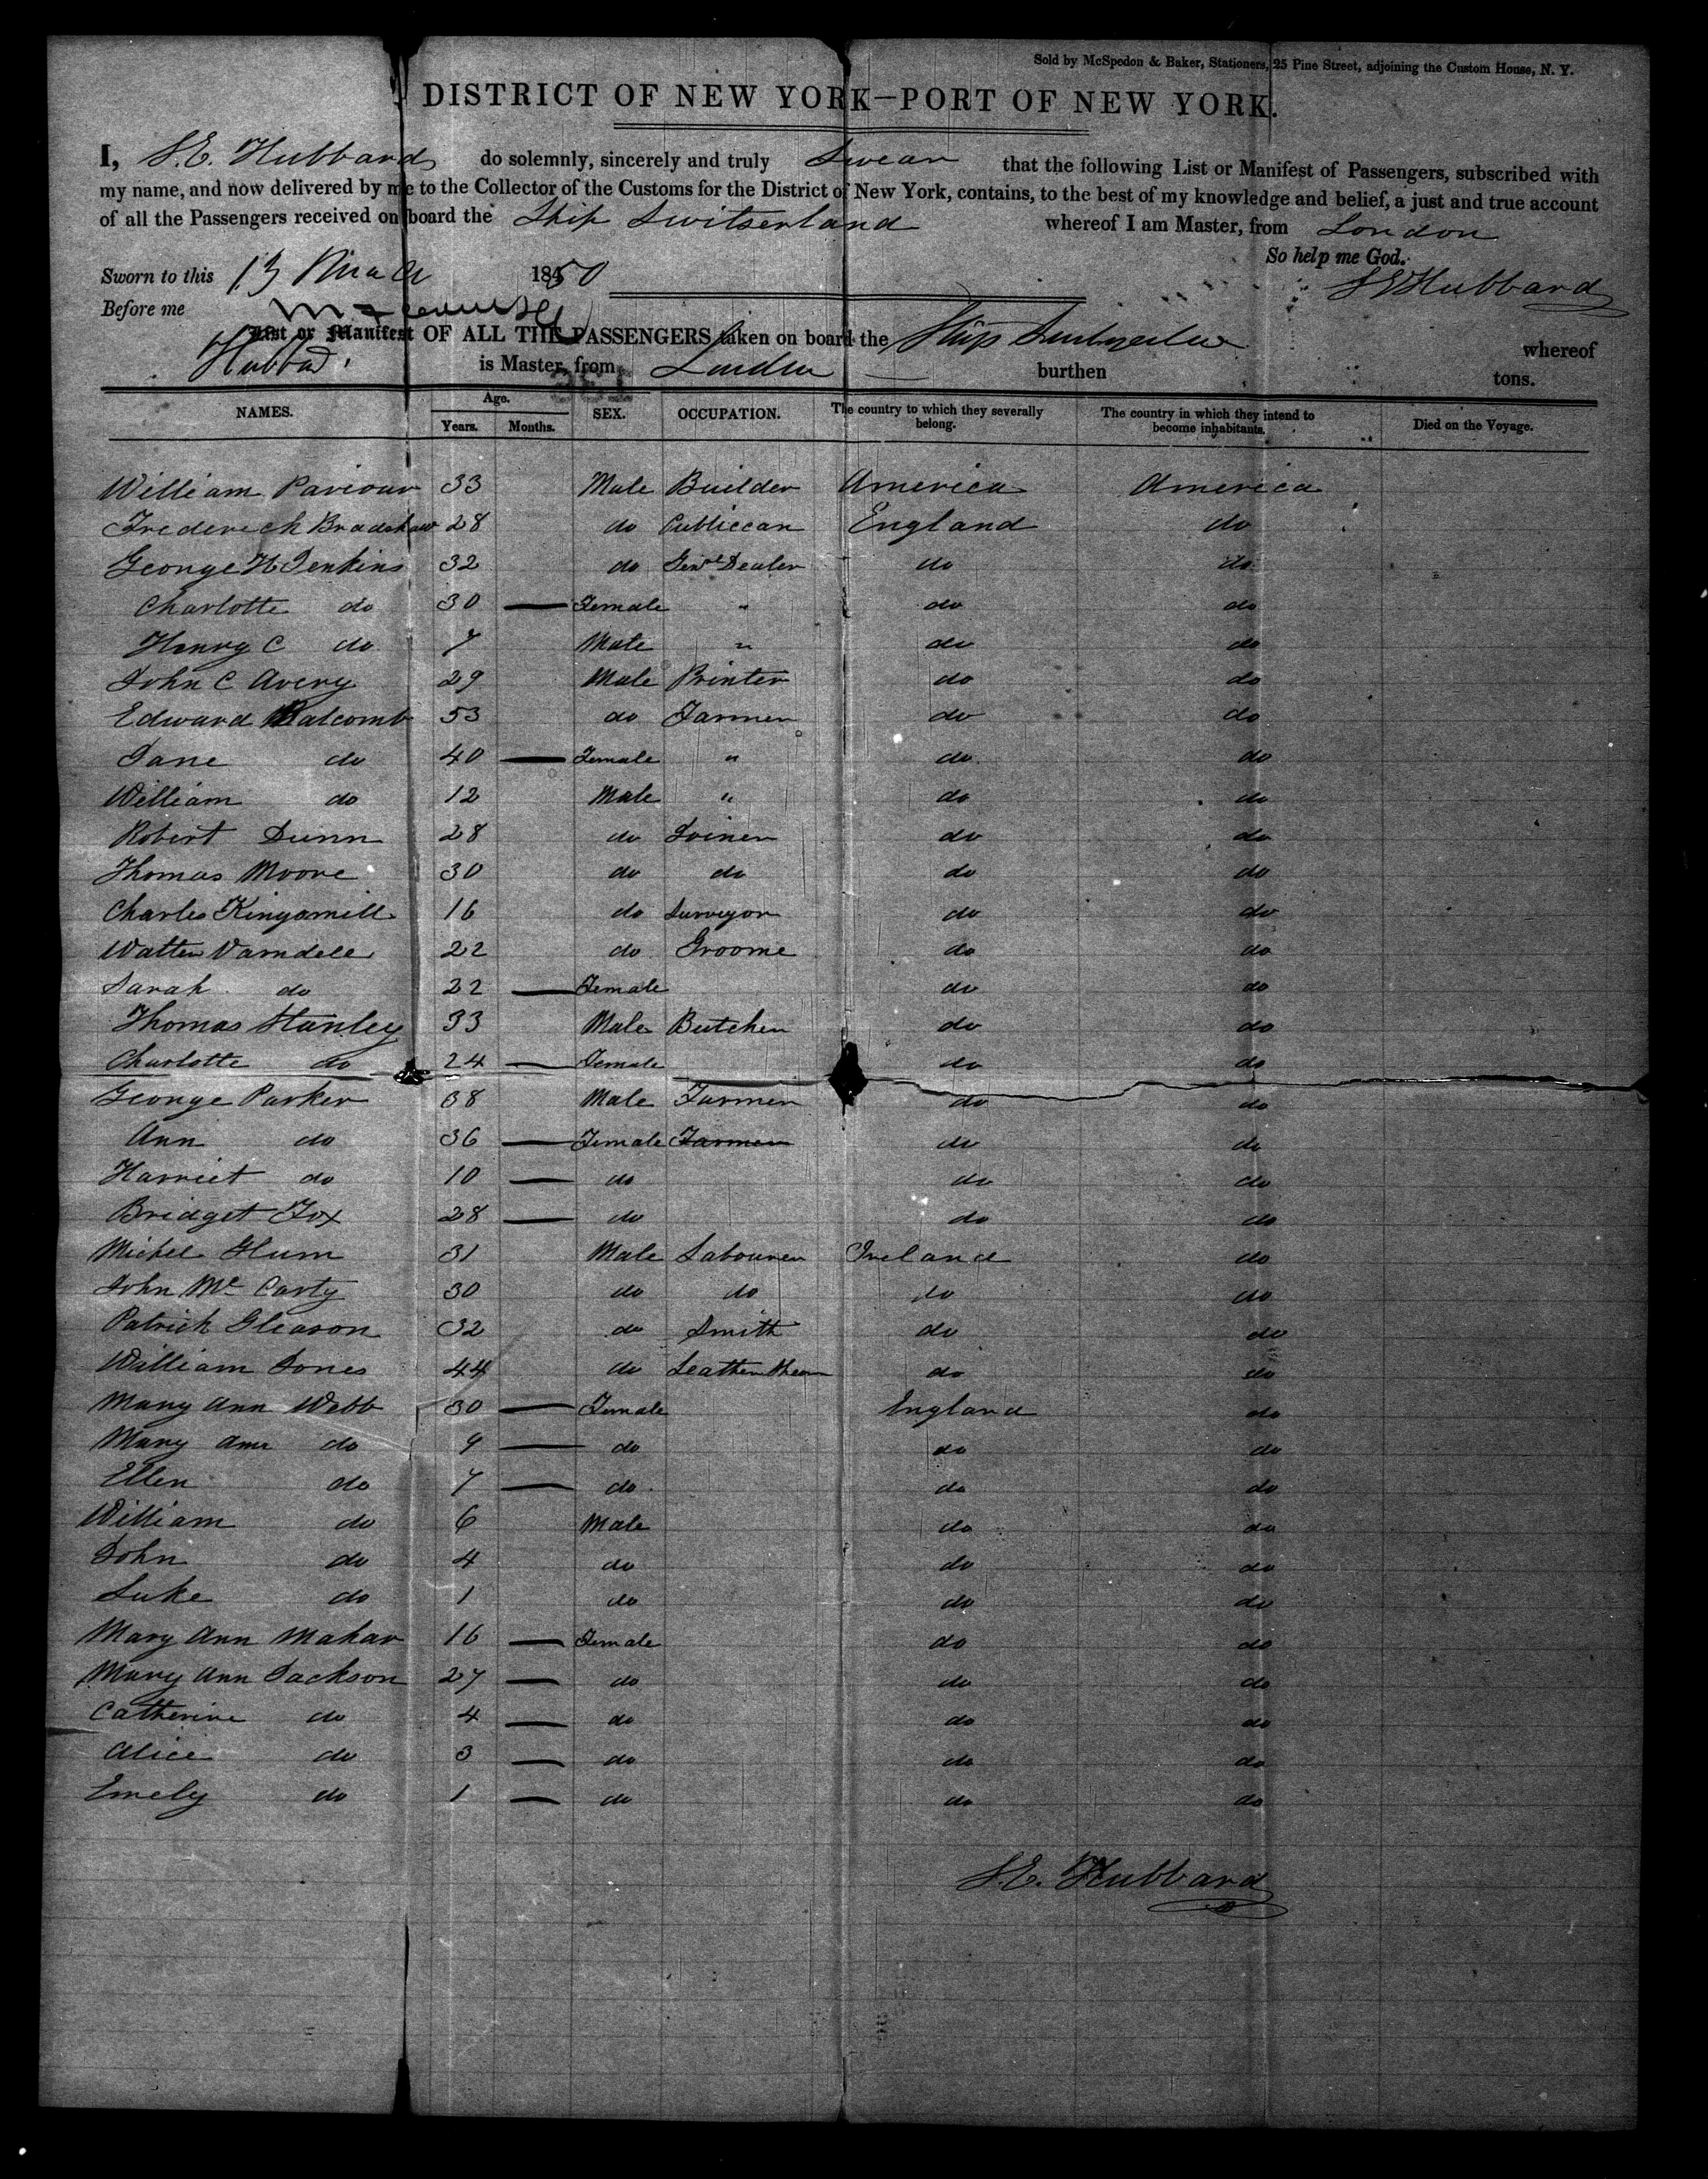 Sold by McSpedon & Baker, Stationers, 25 Pine Street, adjoining the Custom House, N. Y.
DISTRICT OF NEW YORK—PORT OF NEW YORK.
I, S.E. Hubbard do solemnly, sincerely and truly Swear that the following List or Manifest of Passengers, subscribed with
my name, and now delivered by me to the Collector of the Customs for the District of New York, contains, to the best of my knowledge and belief, a just and true account
of all the Passengers received on board the Ship Switserland whereof I am Master, from London
So help me God.
Sworn to this 13 March 1850 S E Hubbard
Before me
List or Manifest OF ALL THE PASSENGERS taken on board the Ship whereof
Hubbard is Master, from London burthen tons.
NAMES. Age. Years. Months. SEX. OCCUPATION. The country to which they severally belong. The country in which they intend to become inhabitants. Died on the Voyage.
William Paviour 33 Male Builder America America
Frederick Bradshaw 28 do Publiccan England do
George H Jenkins 32 do Genl Dealer do do
Charlotte do 30 — Female " do do
Henry C do 7 Male " do do
John C Avery 29 Male Printer do do
Edward Balcomb 53 do Farmer do do
Jane do 40 — Female " do do
William do 12 Male " do do
Robert Dunn 28 do Joiner do do
Thomas Moore 30 do do do do
Charles Kingsmill 16 do Surveyor do do
Walter Varndell 22 do Groome do do
Sarah do 22 — Female do do
Thomas Stanley 33 Male Butcher do do
Charlotte do 24 — Female do do
George Parker 38 Male Farmer do do
Ann do 36 — Female Farmer do do
Harriet do 10 — do do do
Bridget Fox 28 — do do do
Michel Hum 31 Male Labourer Ireland do
John Mc Carty 30 do do do do
Patrick Gleason 32 do Smith do do
William Jones 44 do Leather do do
Mary Ann Webb 30 — Female England do
Mary Ann do 9 — do do do
Ellen do 7 — do do do
William do 6 Male do do
John do 4 do do do
Luke do 1 do do do
Mary Ann Mahar 16 — Female do do
Mary Ann Jackson 27 — do do do
Catherine do 4 — do do do
Alice do 3 — do do do
Emely do 1 — do do do
S.E. Hubbard